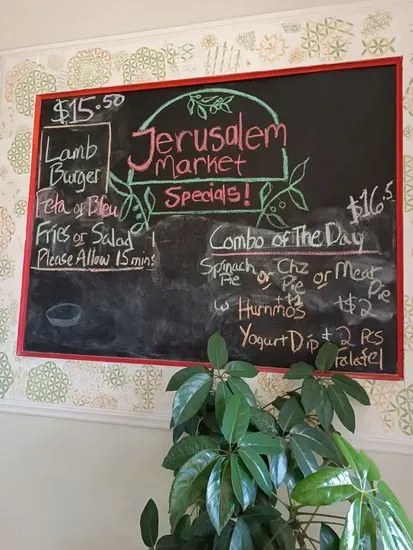 $15.50
Lamb
Burger
Feta or Bleu
Fries or Salad
Please Allow 15 mins
Jerusalem
Market
Specials!
$16.5
Combo of The Day
Spinach or Chz or Meat
Pie Pie Pie
w Hummos
Yogurt Dip 2 Pcs
Falafel